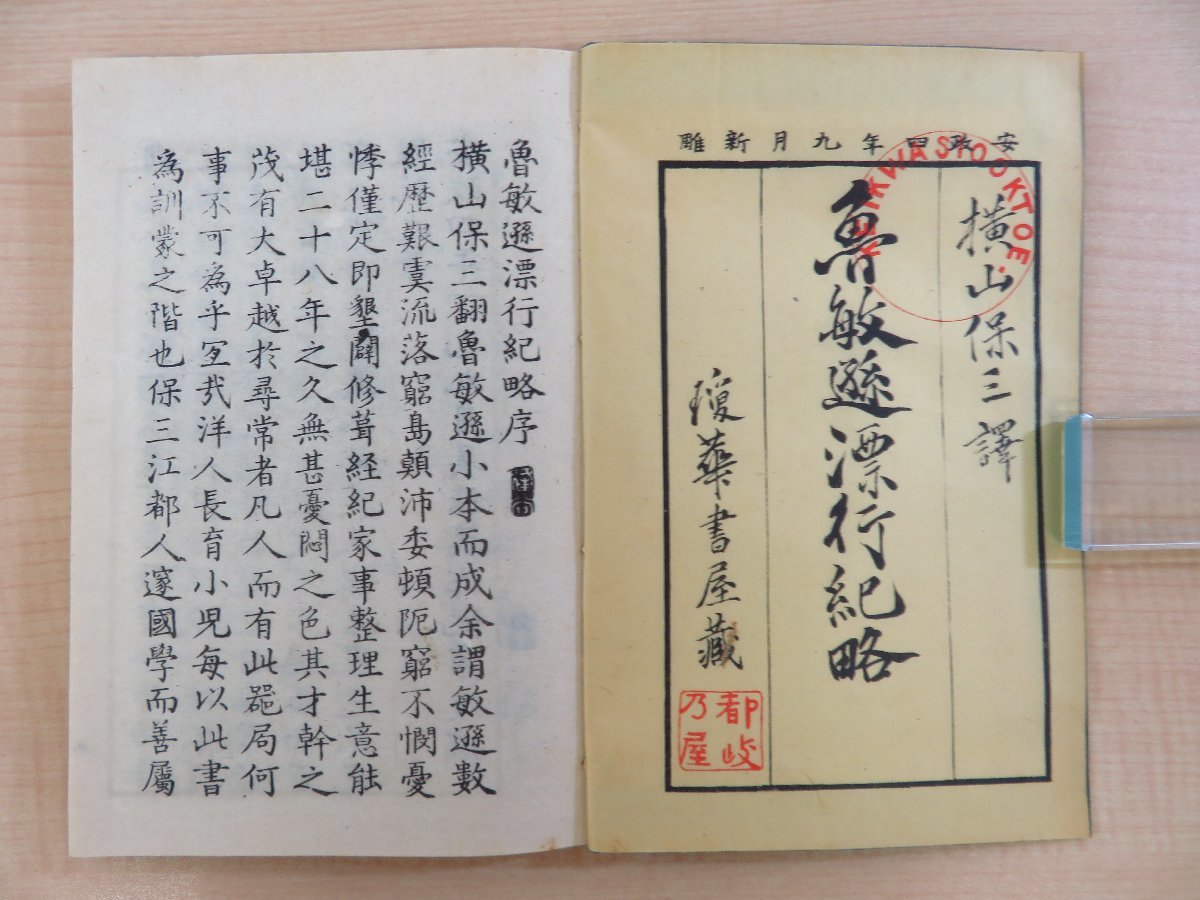 安政四年九月新雕
橫山保三譯
魯敏遜漂行紀略
瓊華書屋藏
都岐乃屋
魯敏遜漂行紀略序
橫山保三翻魯敏遜小本而成余謂敏遜數
經歷艱虞流落窮島顛沛委頓阨窮不憫憂
悸僅定即墾闢修葺経紀家事整理生意能
堪二十八年之久無甚憂悶之色其才幹之
茂有大卓越於尋常者凡人而有此器局何
事不可為乎宜哉洋人長育小児每以此書
為訓蒙之階也保三江都人邃國學而善屬